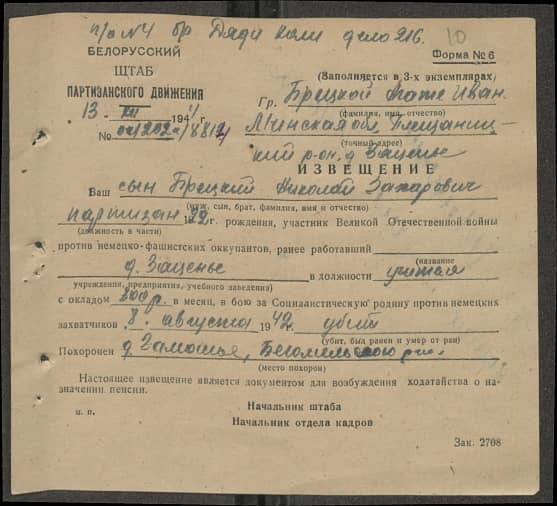 п/о №4 бр Дяди Коли дело 216. 10
БЕЛОРУССКИЙ
ШТАБ
ПАРТИЗАНСКОГО ДВИЖЕНИЯ
13. XII 1944 г.
№
Форма № 6
(Заполняется в 3-х экземплярах)
Гр. Брецкой Иван.
(фамилия, имя, отчество)
Минская обл, Плещениц-
(точный адрес)
кий р-он, д Зацене
ИЗВЕЩЕНИЕ
Ваш сын Брецкий Николай Захарович
(муж, сын, брат, фамилия, имя и отчество)
партизан 1922 г. рождения, участник Великой Отечественной войны
(должность в части)
против немецко-фашистских оккупантов, ранее работавший
(название
д. Заценье в должности учителя
учреждения, предприятия, учебного заведения)
с окладом 800 р. в месяц, в бою за Социалистическую родину против немецких
захватчиков 8. августа 1942 г. убит
(убит, был ранен и умер от ран)
Похоронен д Замошье, Бегомельского р-на.
(место похорон)
Настоящее извещение является документом для возбуждения ходатайства о на-
значении пенсии.
м. п.
Начальник штаба
Начальник отдела кадров
Зак. 2708